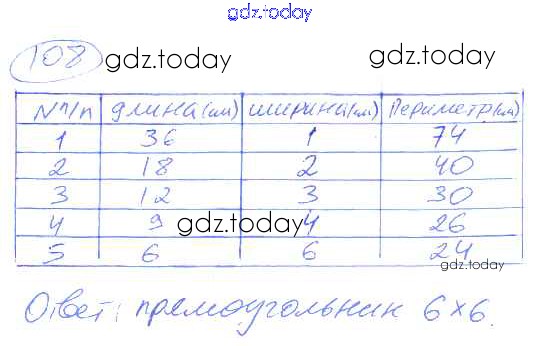 gdz.today
108 gdz.today gdz.today
N п/п длина(см) ширина(см) Периметр(см)
1 36 1 74
2 18 2 40
3 12 3 30
4 9 4 26
gdz.today
5 6 6 24
gdz.today
Ответ: прямоугольник 6×6.